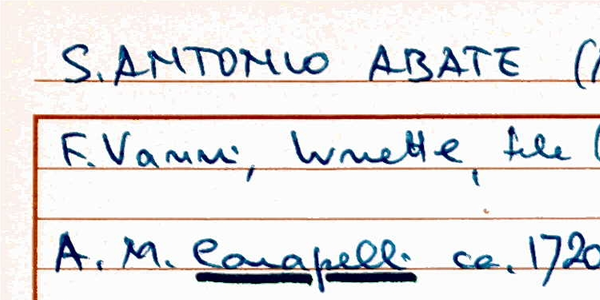 S. ANTONIO ABATE (
F. Vanni, lunette, tele (
A. M. Canapelli ca. 1720